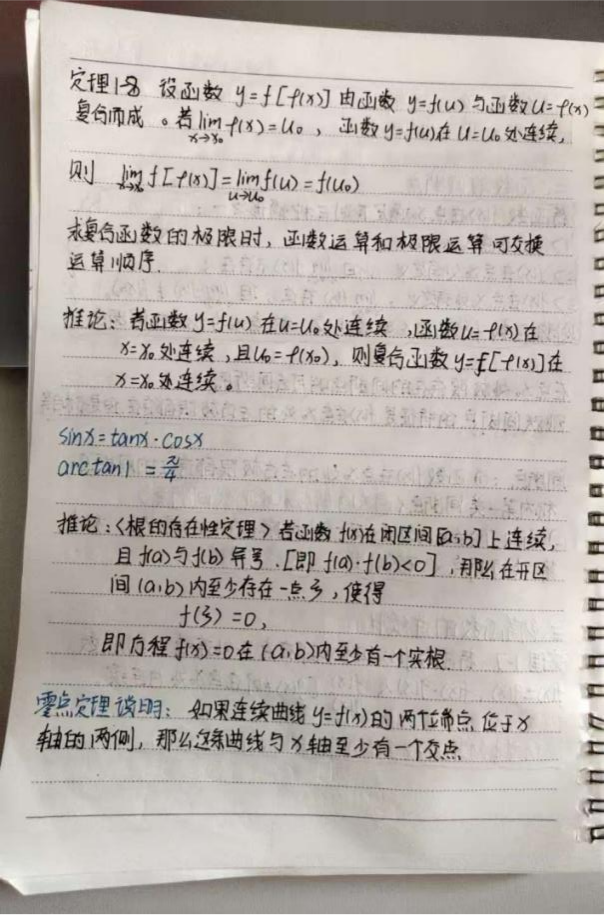 定理1-8 设函数 y=f[φ(x)]由函数 y=f(u) 与函数u=φ(x)
复合而成。若lim x→x₀ φ(x)=u₀，函数y=f(u)在u=u₀处连续，
则 lim x→x₀ f[φ(x)]=lim u→u₀ f(u)=f(u₀)
求复合函数的极限时，函数运算和极限运算可交换
运算顺序.
推论：若函数y=f(u)在u=u₀处连续，函数u=φ(x)在
x=x₀处连续，且u₀=φ(x₀)，则复合函数y=f[φ(x)]在
x=x₀处连续。
sinx=tanx·cosx
arctan1=π/4
推论：<根的存在性定理>若函数f(x)在闭区间[a,b]上连续，
且f(a)与f(b)异号.[即f(a)·f(b)<0]，那么在开区
间(a,b)内至少存在一点ξ，使得
f(ξ)=0，
即方程f(x)=0在(a,b)内至少有一个实根.
零点定理说明：如果连续曲线y=f(x)的两个端点位于x
轴的两侧，那么这条曲线与x轴至少有一个交点